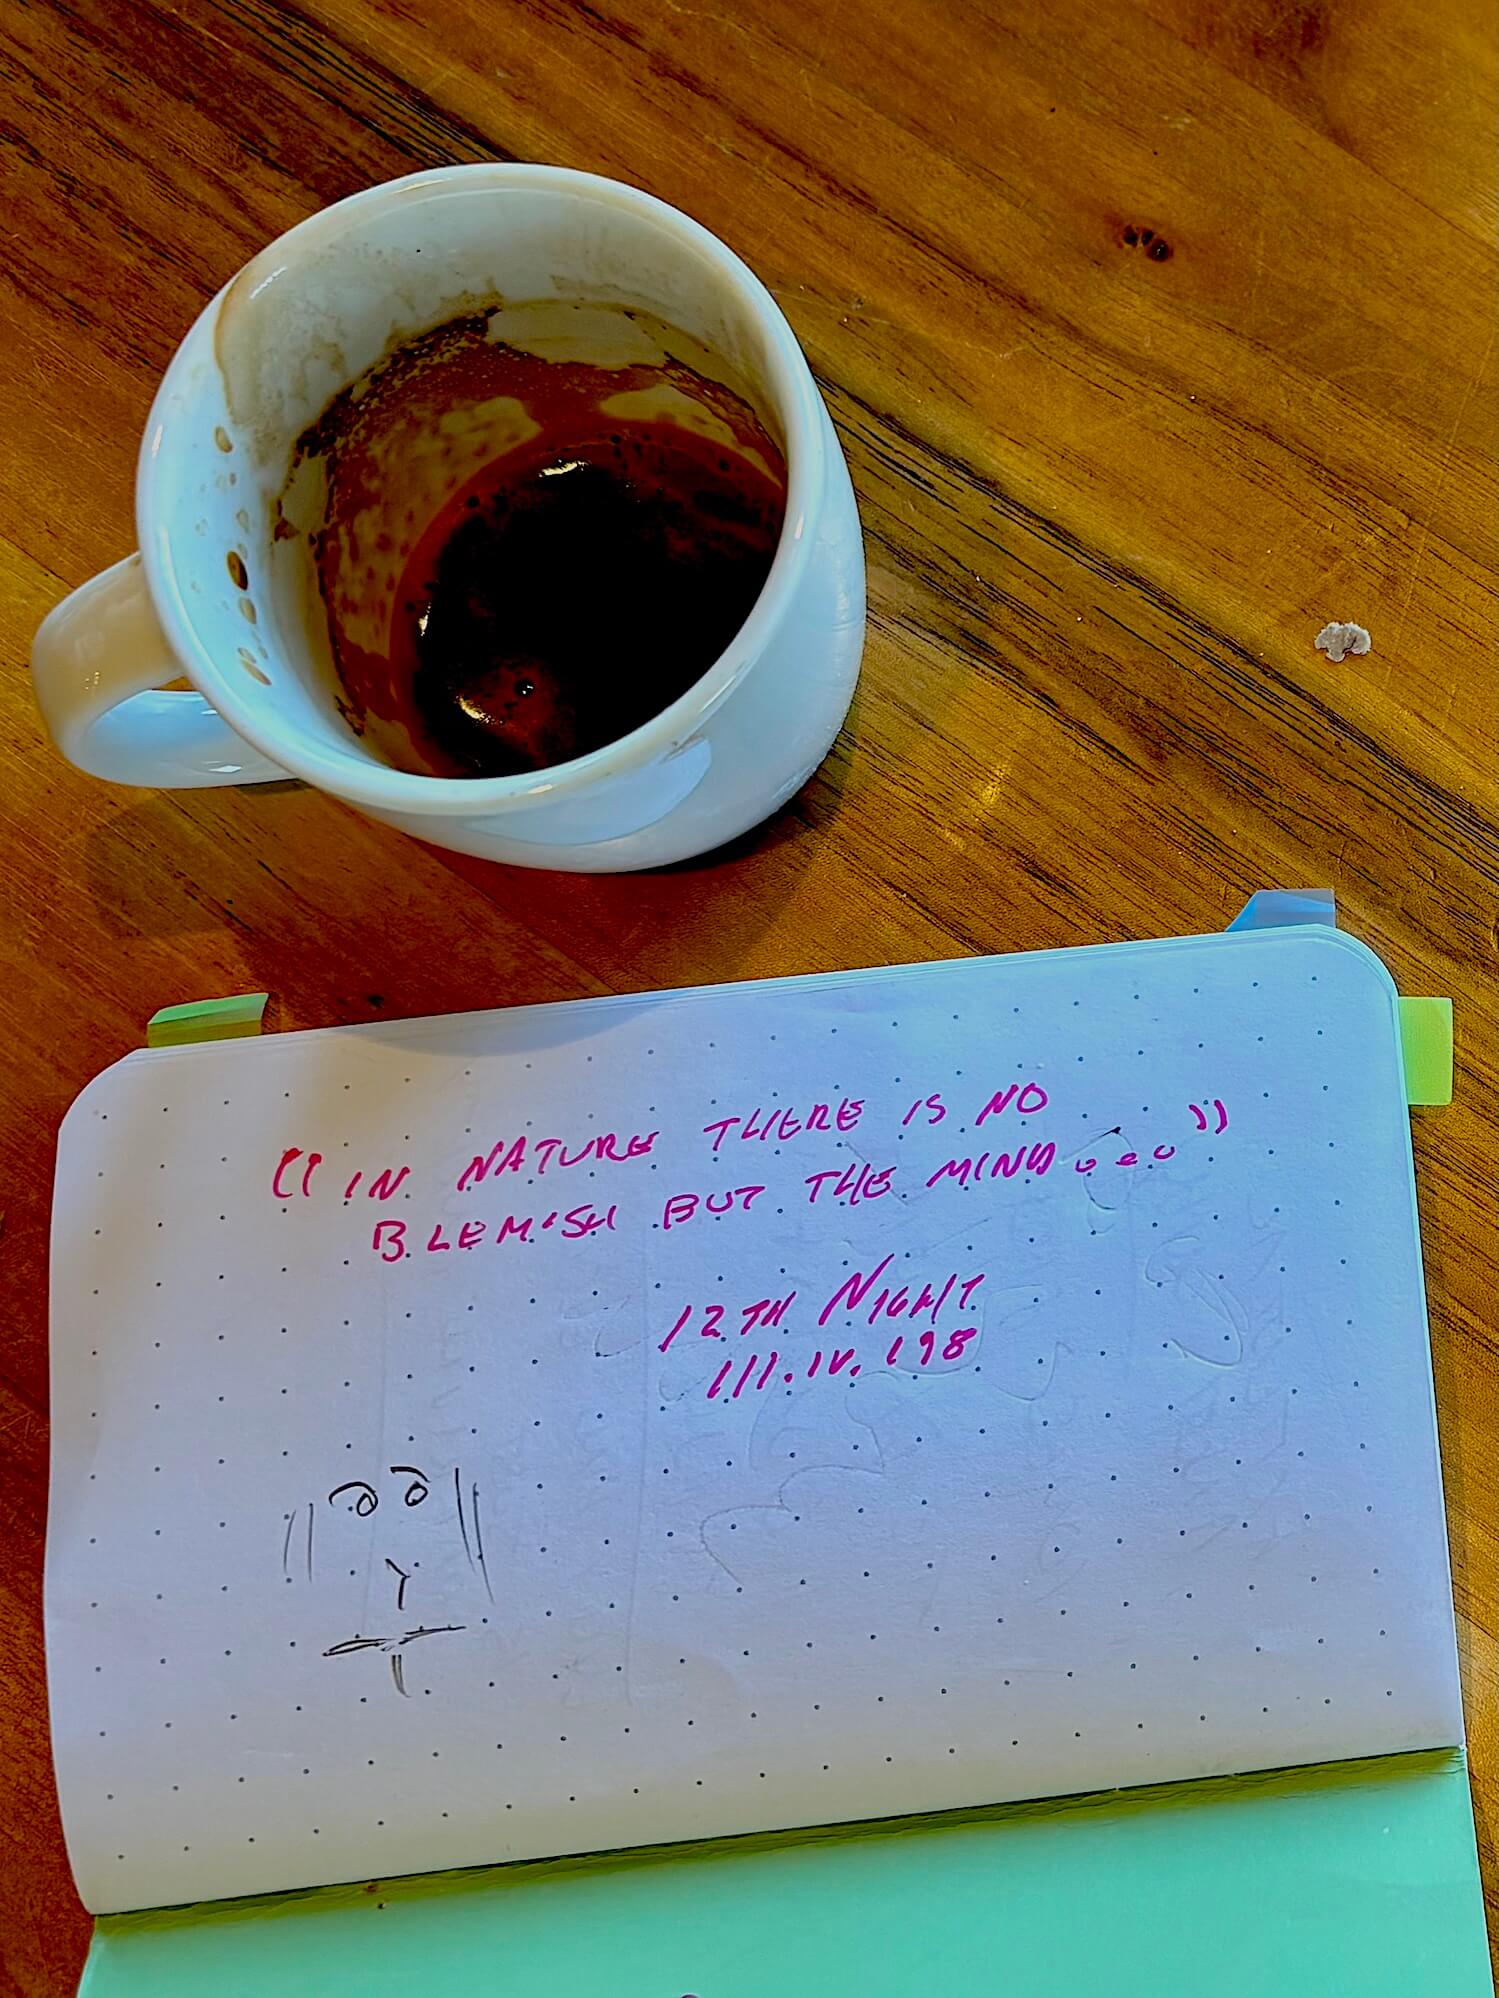 "IN NATURE THERE IS NO
BLEMISH BUT THE MIND..."
12TH NIGHT
III.IV.198